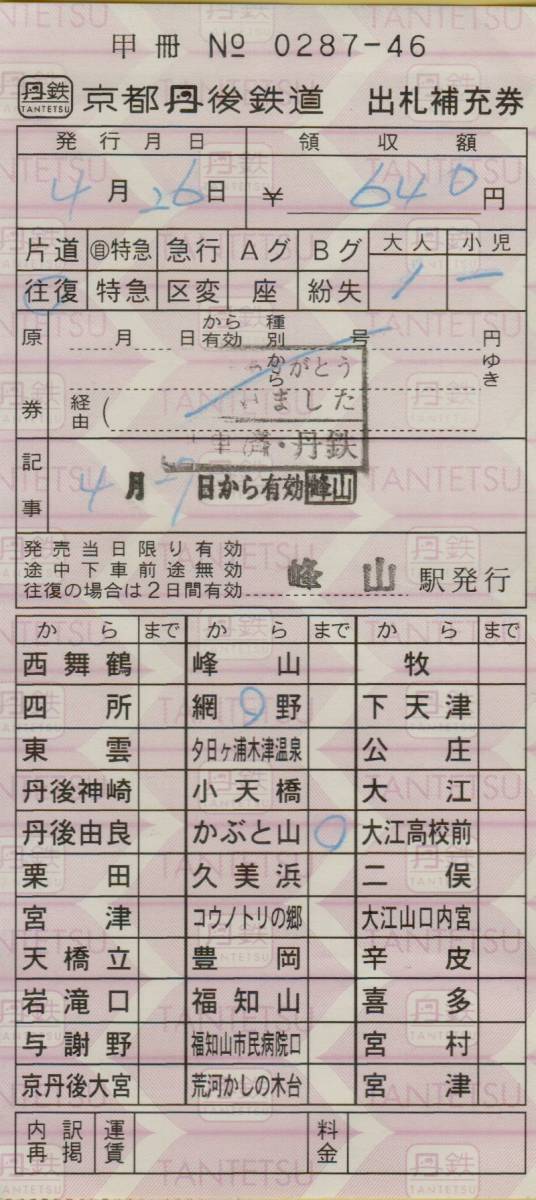 甲冊 № 0287-46
丹鉄 TANTETSU 京都丹後鉄道 出札補充券
発行月日 領収額
4月26日 ¥ 640円
片道 自特急 急行 Aグ Bグ 大人 小児
往復 特急 区変 座 紛失 1 ー
原券 月 日から有効 種別 号 円
から ゆき
経由 (
がとう
いました
車済・丹鉄
記事 4月 日から有効 峰山
発売当日限り有効
途中下車前途無効
往復の場合は2日間有効 峰山 駅発行
から まで から まで から まで
西舞鶴 峰山 牧
四所 網野 下天津
東雲 夕日ヶ浦木津温泉 公庄
丹後神崎 小天橋 大江
丹後由良 かぶと山 大江高校前
栗田 久美浜 二俣
宮津 コウノトリの郷 大江山口内宮
天橋立 豊岡 辛皮
岩滝口 福知山 喜多
与謝野 福知山市民病院口 宮村
京丹後大宮 荒河かしの木台 宮津
内訳再掲 運賃 料金